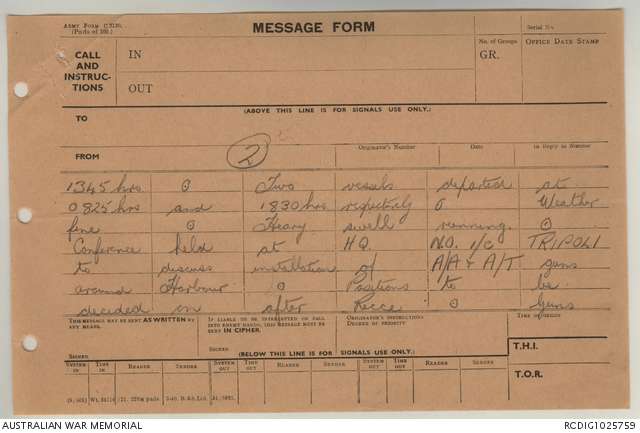 ARMY FORM C.2136.
(Pads of 100.)
MESSAGE FORM
Serial No.
CALL AND INSTRUC- TIONS
IN
OUT
No. of Groups
GR.
OFFICE DATE STAMP
(ABOVE THIS LINE IS FOR SIGNALS USE ONLY.)
TO
FROM
2
Originator's Number
Date
In Reply to Number
1345 hrs ⊙ Two vessels departed at
0825 hrs and 1830 hrs respectively ⊙ Weather
fine ⊙ Heavy swell running ⊙
Conference held at HQ N.O. i/c TRIPOLI
to discuss installation of A/A & A/T guns
around Harbour ⊙ Positions to be
decided on after Recce ⊙ Guns
THIS MESSAGE MAY BE SENT AS WRITTEN BY ANY MEANS.
IF LIABLE TO BE INTERCEPTED OR FALL INTO ENEMY HANDS, THIS MESSAGE MUST BE SENT IN CIPHER.
ORIGINATOR'S INSTRUCTIONS
DEGREE OF PRIORITY
TIME OF ORIGIN
SIGNED
SIGNED
(BELOW THIS LINE IS FOR SIGNALS USE ONLY.)
T.H.I.
SYSTEM IN
TIME IN
READER
SENDER
SYSTEM OUT
TIME OUT
READER
SENDER
SYSTEM OUT
TIME OUT
READER
SENDER
T.O.R.
AUSTRALIAN WAR MEMORIAL
RCDIG1025759